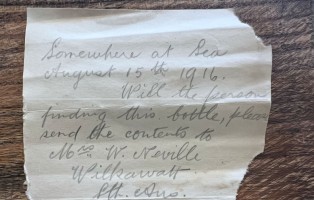 Somewhere at Sea
August 15th 1916.
Will the person
finding this bottle, please
send the contents to
Mrs W. Neville
Wilkawatt
Sth. Aus.